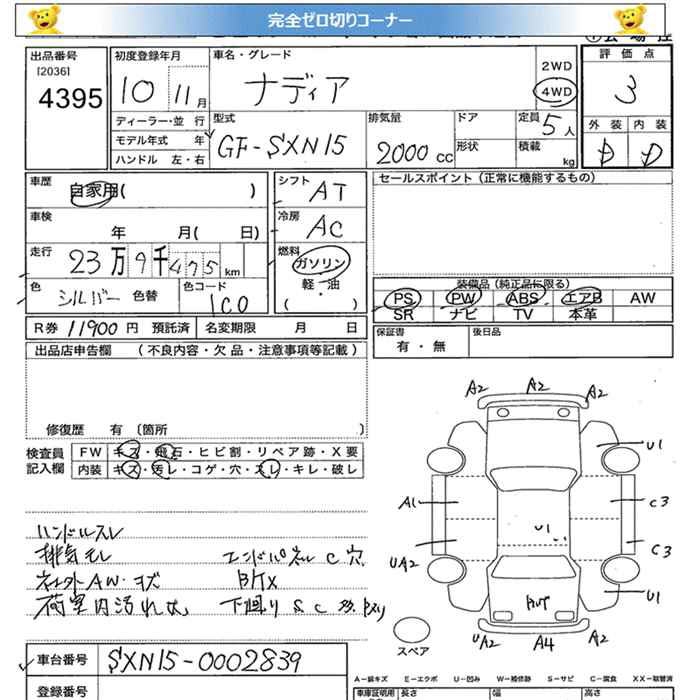 完全ゼロ切りコーナー
出品番号
[2036]
4395
初度登録年月
10 11月
車名・グレード
ナディア
2WD
4WD
評価点
3
ディーラー・並 行
モデル年式 年
ハンドル 左・右
型式
GF-SXN15
排気量
2000 cc
ドア
定員 5人
形状
積載 kg
外装 内装
D D
車歴
自家用( )
車検
年 月( 日)
走行
23万9千475km
色
シルバー 色替
色コード
1C0
シフト AT
冷房 AC
燃料
ガソリン
(軽・油)
セールスポイント (正常に機能するもの)
装備品 (純正品に限る)
PS PW ABS エアB AW
SR ナビ TV 本革
R券 11900円 預託済 名変期限 月 日
保証書
有・無
後日品
出品店申告欄 (不良内容・欠品・注意事項等記載)
修復歴 有 〔箇所 〕
検査員
記入欄
FW キズ・飛石・ヒビ割・リペア跡・X要
内装 キズ・汚レ・コゲ・穴・スレ・キレ・破レ
ハンドルスレ
排気モレ
社外AW・キズ
荷室内汚れ大
エンドパネルC穴
下廻りS C
A2 A2 A2
U1
A1 C3
U1
UA2 C3
U1
UA2 A4 A2
スペア
車台番号
SXN15-0002839
登録番号
A-線キズ E-エクボ U-凹み W-補修跡 S-サビ C-腐食 XX-取替済
車庫証明用 長さ 幅 高さ